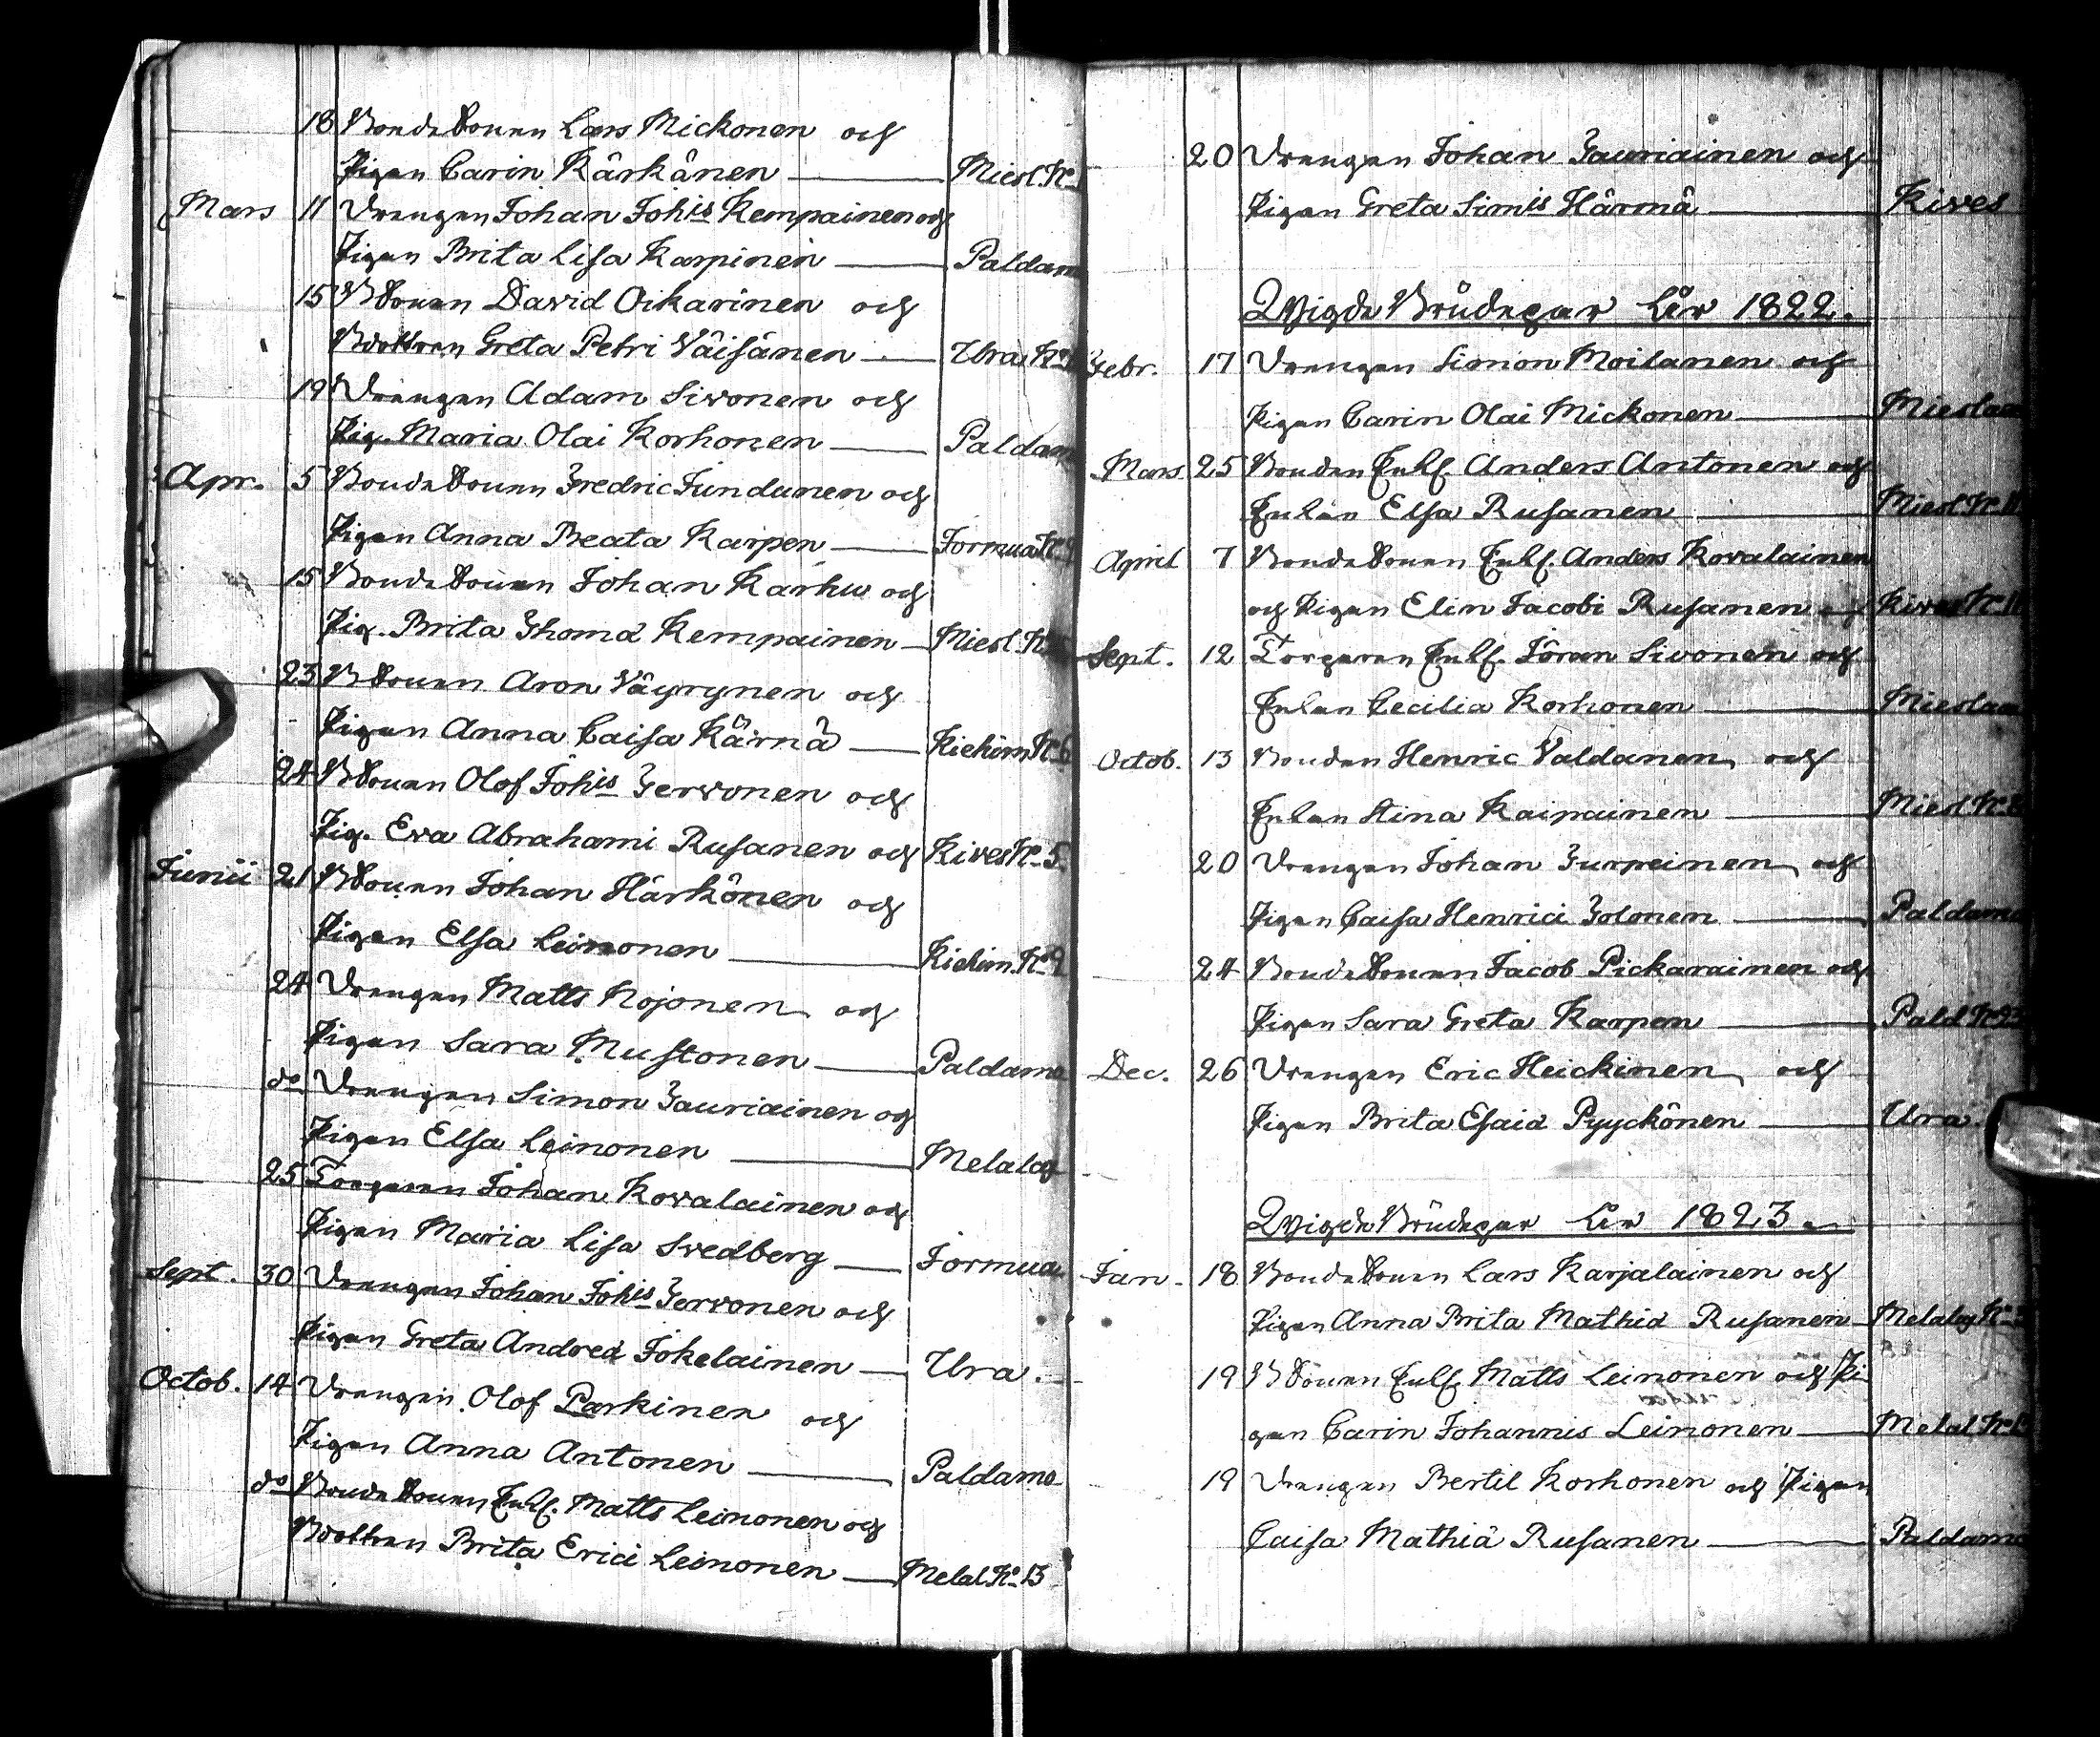 18 Bondesonen Lars Mickonen och
Pigan Carin Kärkänen — Miesl. No
Mars 11 Drengen Johan Johis Kempainen och
Pigan Brita Lisa Karpinen — Paldam
15 Bsonen David Oikarinen och
Bdottren Greta Petri Väisänen — Ura No
19 Drengen Adam Sivonen och
Pig. Maria Olai Korhonen — Paldam
Apr. 5 Bondesonen Fredric Jundunen och
Pigan Anna Beata Karpen — Jormua No
15 Bondesonen Johan Karhu och
Pig. Brita Thomæ Kempainen — Miesl. No
23 Bsonen Aron Väyrynen och
Pigan Anna Caisa Kärnä — Kiehim No 6
24 Bsonen Olof Johis Tervonen och
Pig. Eva Abrahami Rusanen och Kives No 5.
Junii 21 Bsonen Johan Härkönen och
Pigan Elsa Leinonen — Kiehim. No 9
24 Drengen Matts Nojonen och
Pigan Sara Mustonen — Paldamo
do Drengen Simon Tauriainen och
Pigan Elsa Leinonen — Melalax
25 Torparen Johan Kovalainen och
Pigan Maria Lisa Svedberg — Jormua
Sept. 30 Drengen Johan Johis Tervonen och
Pigan Greta Andreæ Jokelainen — Ura.
Octob. 14 Drengen Olof Parkinen och
Pigan Anna Antonen — Paldamo
do Bondesonen Enkl. Matts Leinonen och
Bdottren Brita Erici Leinonen — Melal No 13
20 Drengen Johan Tauriainen och
Pigan Greta Simis Härmä — Kives
Wigde Brudepar År 1822.
Febr. 17 Drengen Simon Moilanen och
Pigan Carin Olai Mickonen — Mieslax
Mars 25 Bonden Enkl. Anders Antonen och
Enkan Elsa Rusanen — Miesl No 11
April 7 Bondesonen Enkl. Anders Kovalainen
och Pigan Elin Jacobi Rusanen — Kives No 11
Sept. 12 Torparen Enkl. Jöran Sivonen och
Enkan Cecilia Korhonen — Mieslax
Octob. 13 Bonden Henric Valdanen och
Enkan Stina Kaipainen — Miesl No
20 Drengen Johan Turpeinen och
Pigan Caisa Henrici Tolonen — Paldamo
24 Bondesonen Jacob Pickarainen och
Pigan Sara Greta Karpen — Pald No 23
Dec. 26 Drengen Eric Heickinen och
Pigan Brita Esaiæ Pyyckönen — Ura.
Wigde Brudepar År 1823.
Jan. 18 Bondesonen Lars Karjalainen och
Pigan Anna Brita Mathiæ Rusanen — Melalax No
19 Bsonen Enkl. Matts Leinonen och Pi
gan Carin Johannis Leinonen — Melal No
19 Drengen Bertil Korhonen och Pigan
Caisa Mathiæ Rusanen — Paldamo